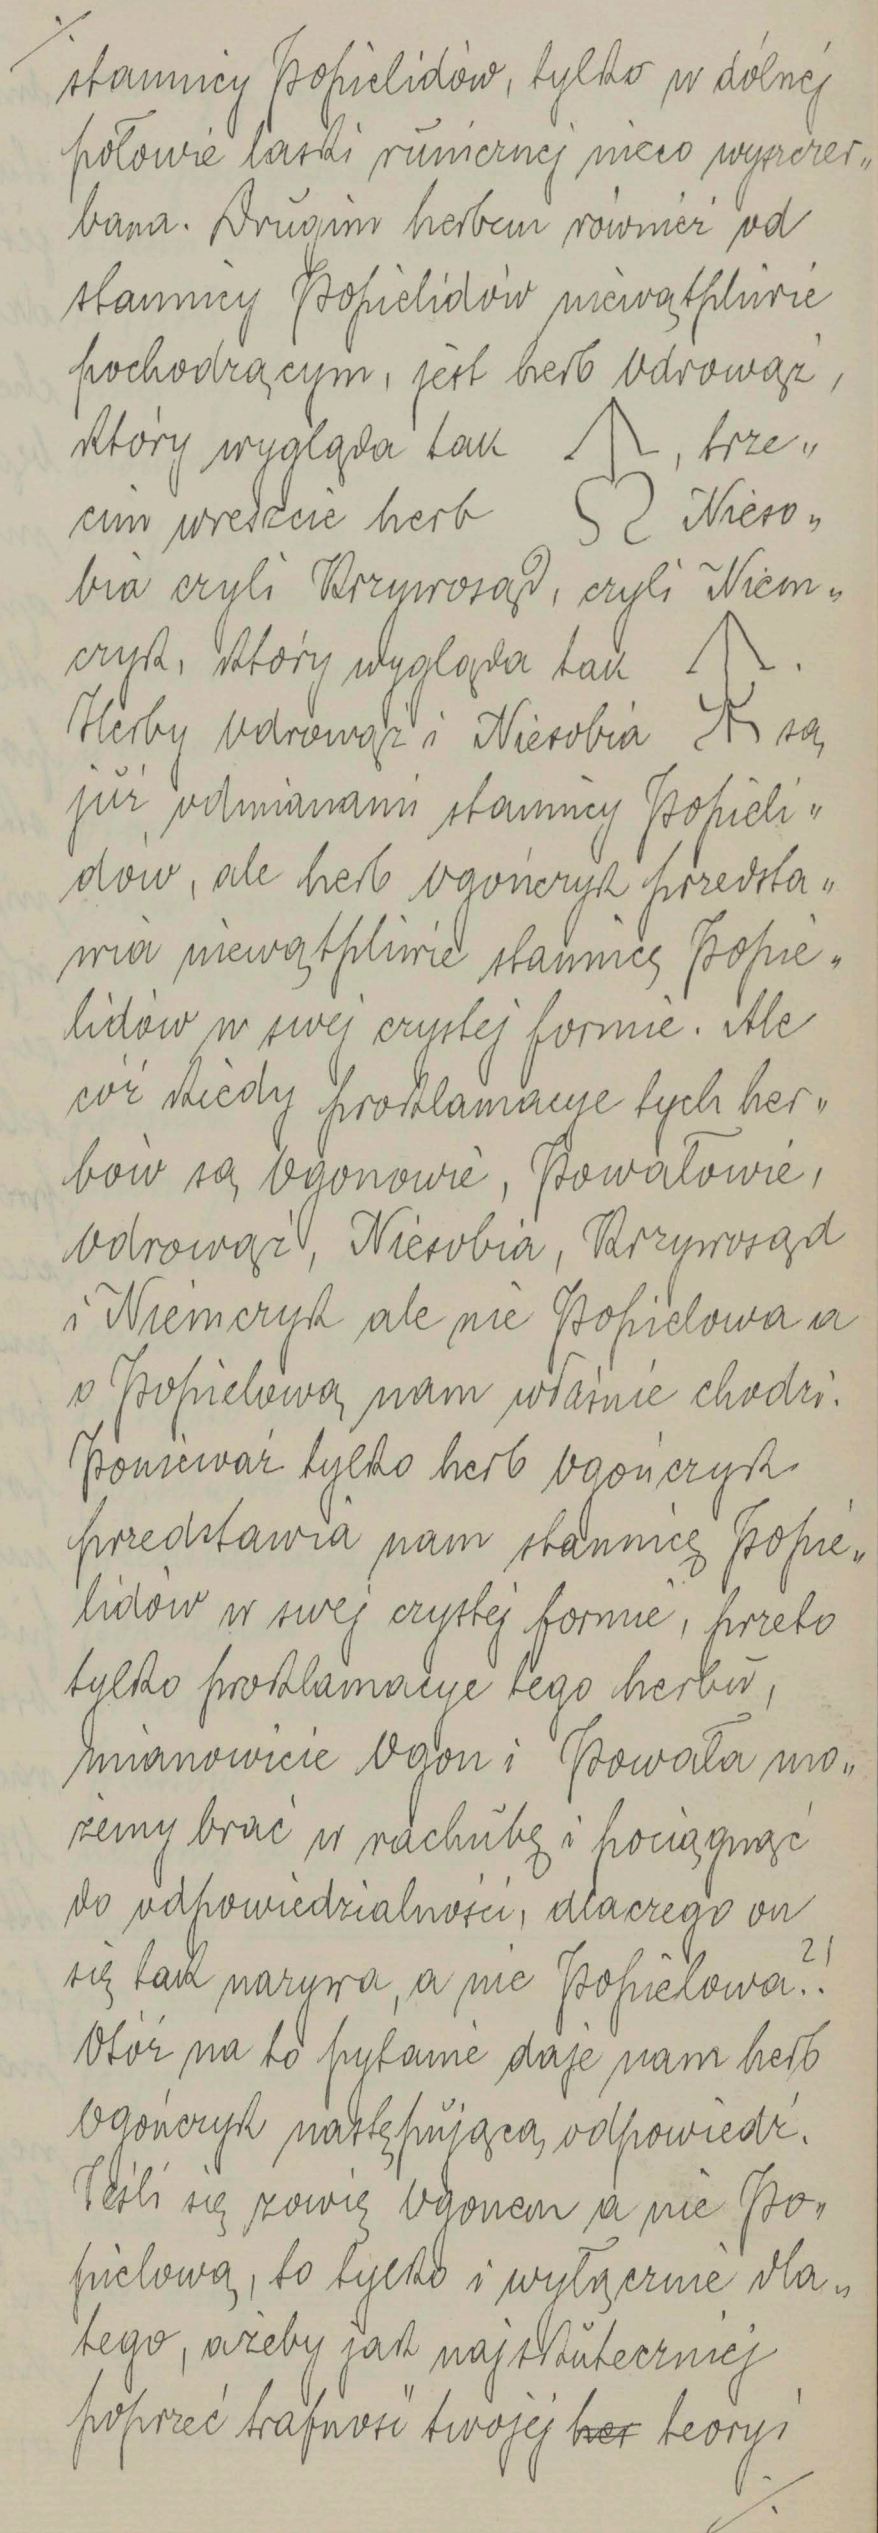 stannicy Popielidów, tylko w dólnéj
połowie laski runicznej nieco wyszczer„
bana. Drugim herbem również od
stannicy Popielidów niewątpliwie
pochodzącym, jest herb Odrowąż,
który wygląda tak , trze„
cim wreszcie herb Nieso„
bia czyli Krzywosąd, czyli Niem„
czyk, który wygląda tak .
Herby Odrowąż i Niesobia są
już odmianami stannicy Popieli„
dów, ale herb Ogończyk przedsta„
wia niewątpliwie stannicę Popie„
lidów w swej czystej formie. Ale
cóż kiedy proklamacye tych her„
bów są Ogonowie, Powałowie,
Odrowąż, Niesobia, Krzywosąd
i Niemczyk ale nie Popielowa a
o Popielową nam właśnie chodzi.
Ponieważ tylko herb Ogończyk
przedstawia nam stannicę Popie„
lidów w swej czystej formie, przeto
tylko proklamacye tego herbu,
mianowicie Ogon i Powała mo„
żemy brać w rachubę i pociągnąć
do odpowiedzialności, dlaczego on
się tak nazywa, a nie Popielowa?!
Otóż na to pytanie daje nam herb
Ogończyk następującą odpowiedź.
Jeśli się zowię Ogonem a nie Po„
pielową, to tylko i wyłącznie dla„
tego, ażeby jak najskuteczniej
poprzeć trafność twojéj her teoryi